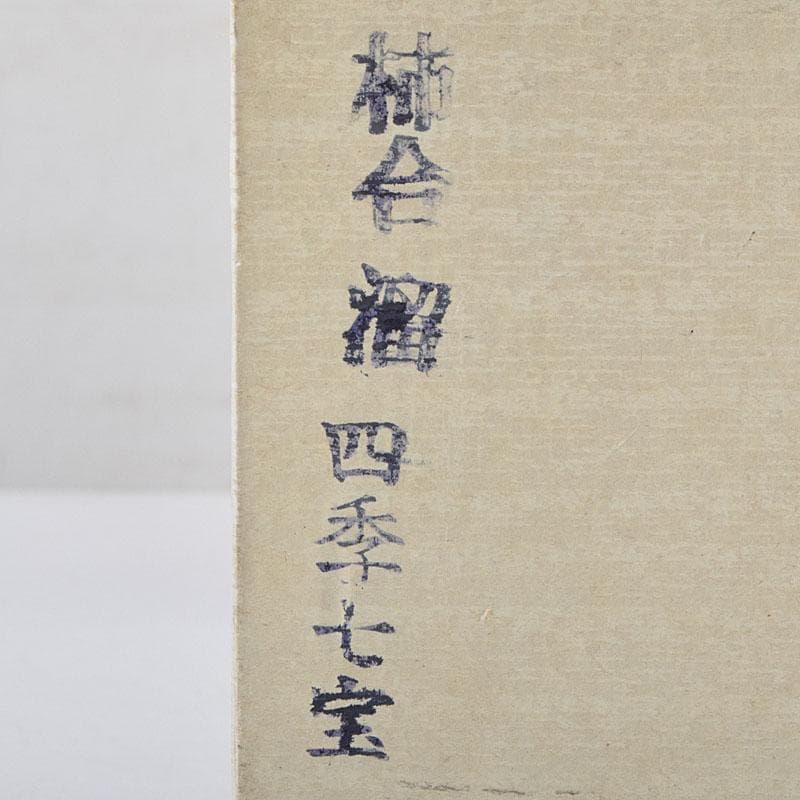 柿合 溜 四季七宝